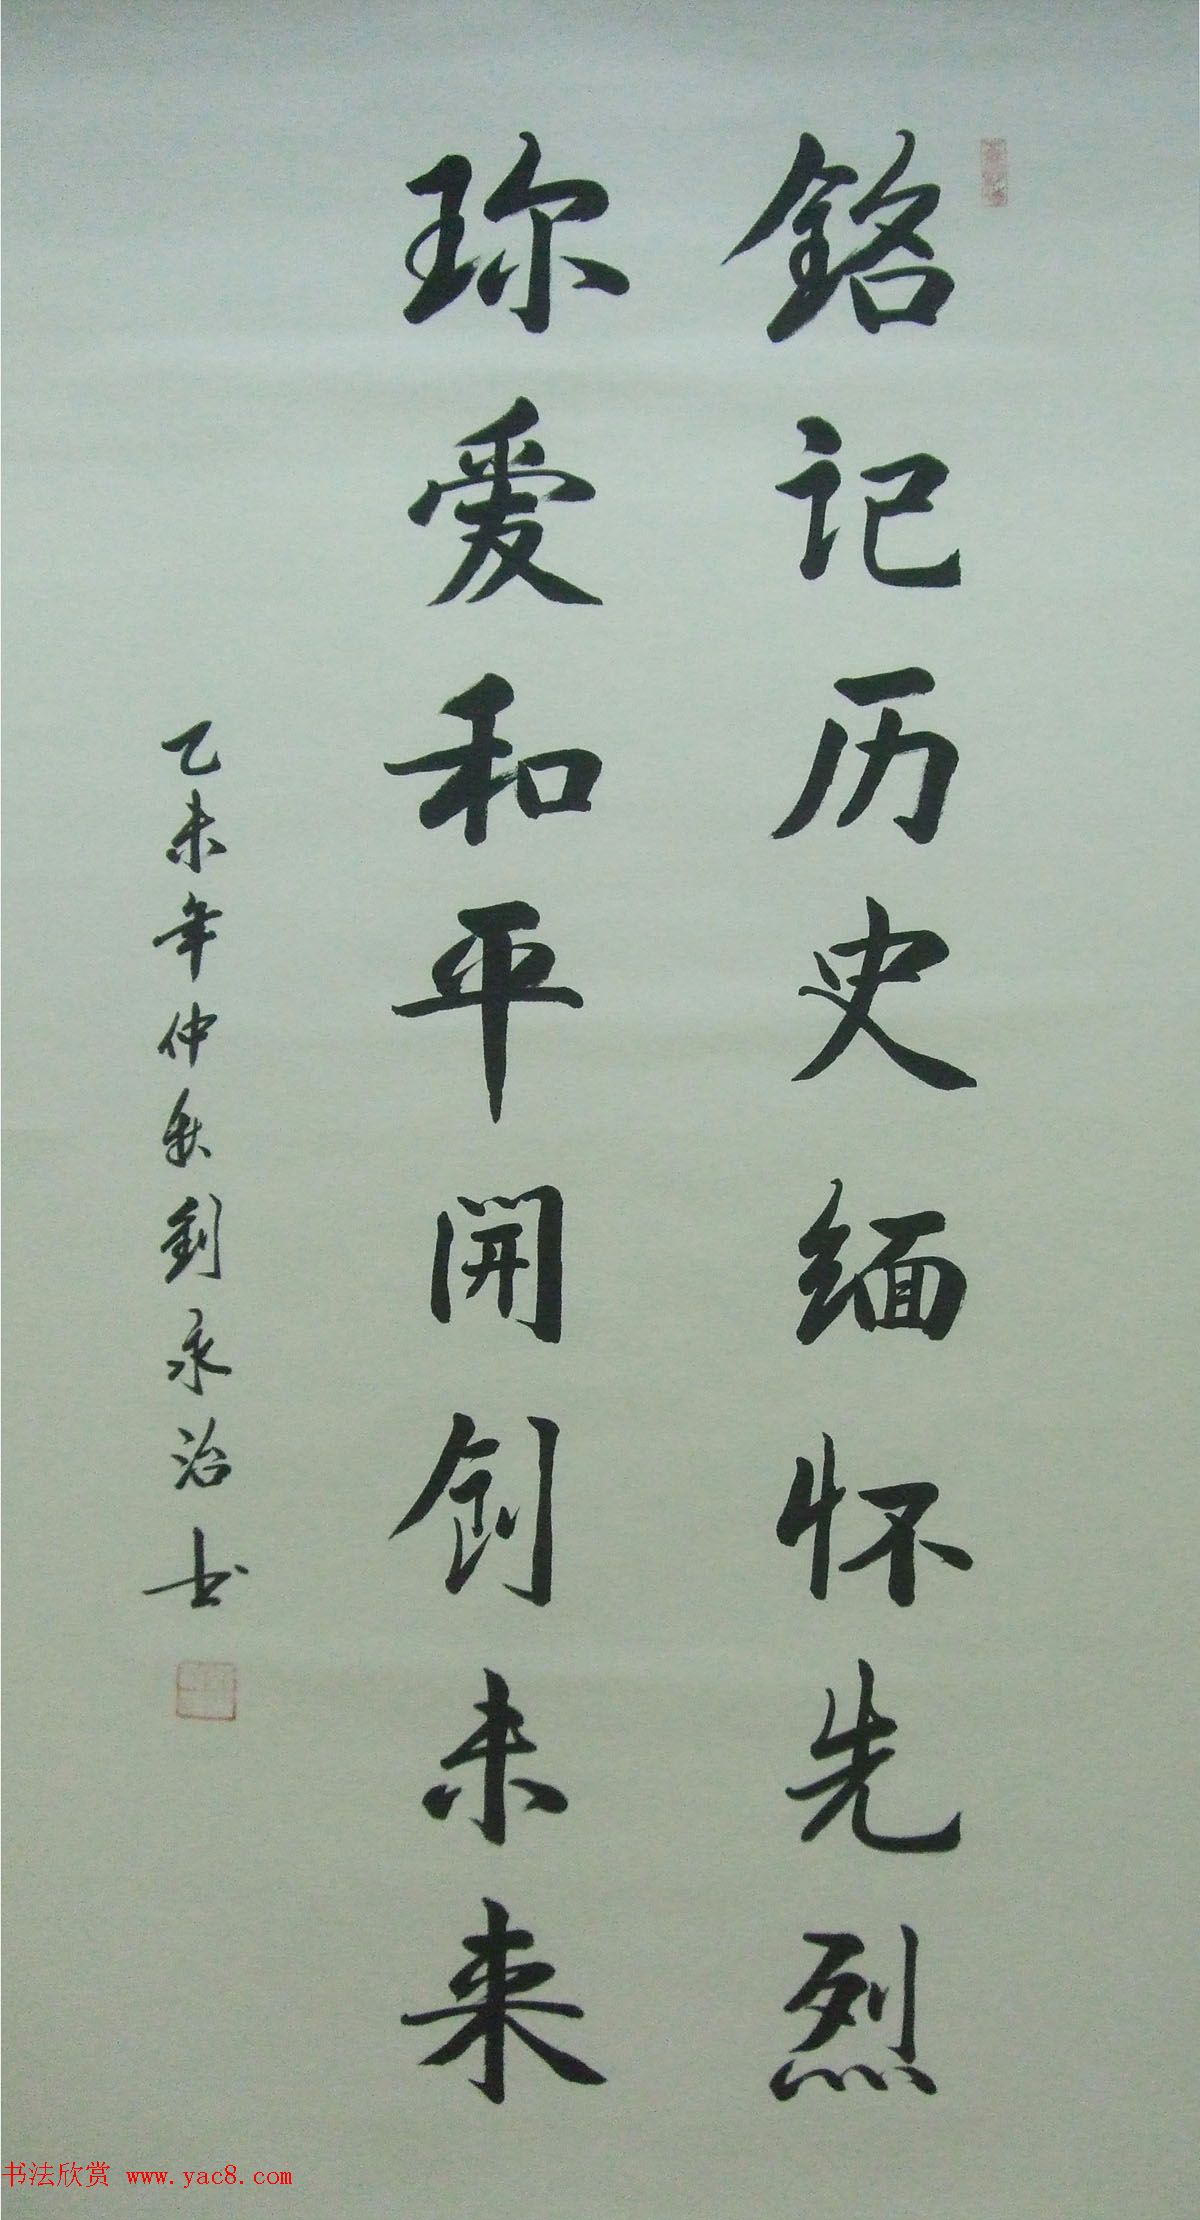 銘记历史缅怀先烈
珎爱和平開创未来
乙未年仲秋劉永治书
书法欣赏 www.yac8.com